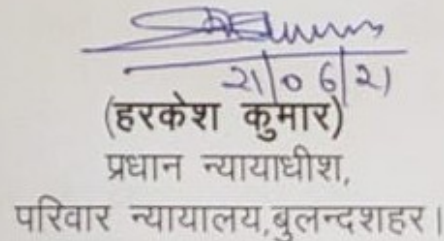 21/06/21
(हरकेश कुमार)
प्रधान न्यायाधीश,
परिवार न्यायालय,बुलन्दशहर।